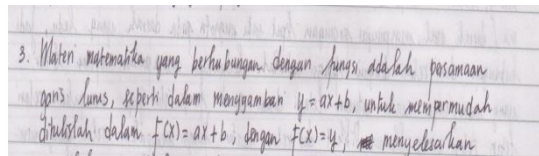 3. Materi matematika yang berhubungan dengan fungsi adalah persamaan
garis lurus, seperti dalam menggambar y = ax + b, untuk mempermudah
ditulislah dalam F(x) = ax + b, dengan f(x) = y, menyelesaikan